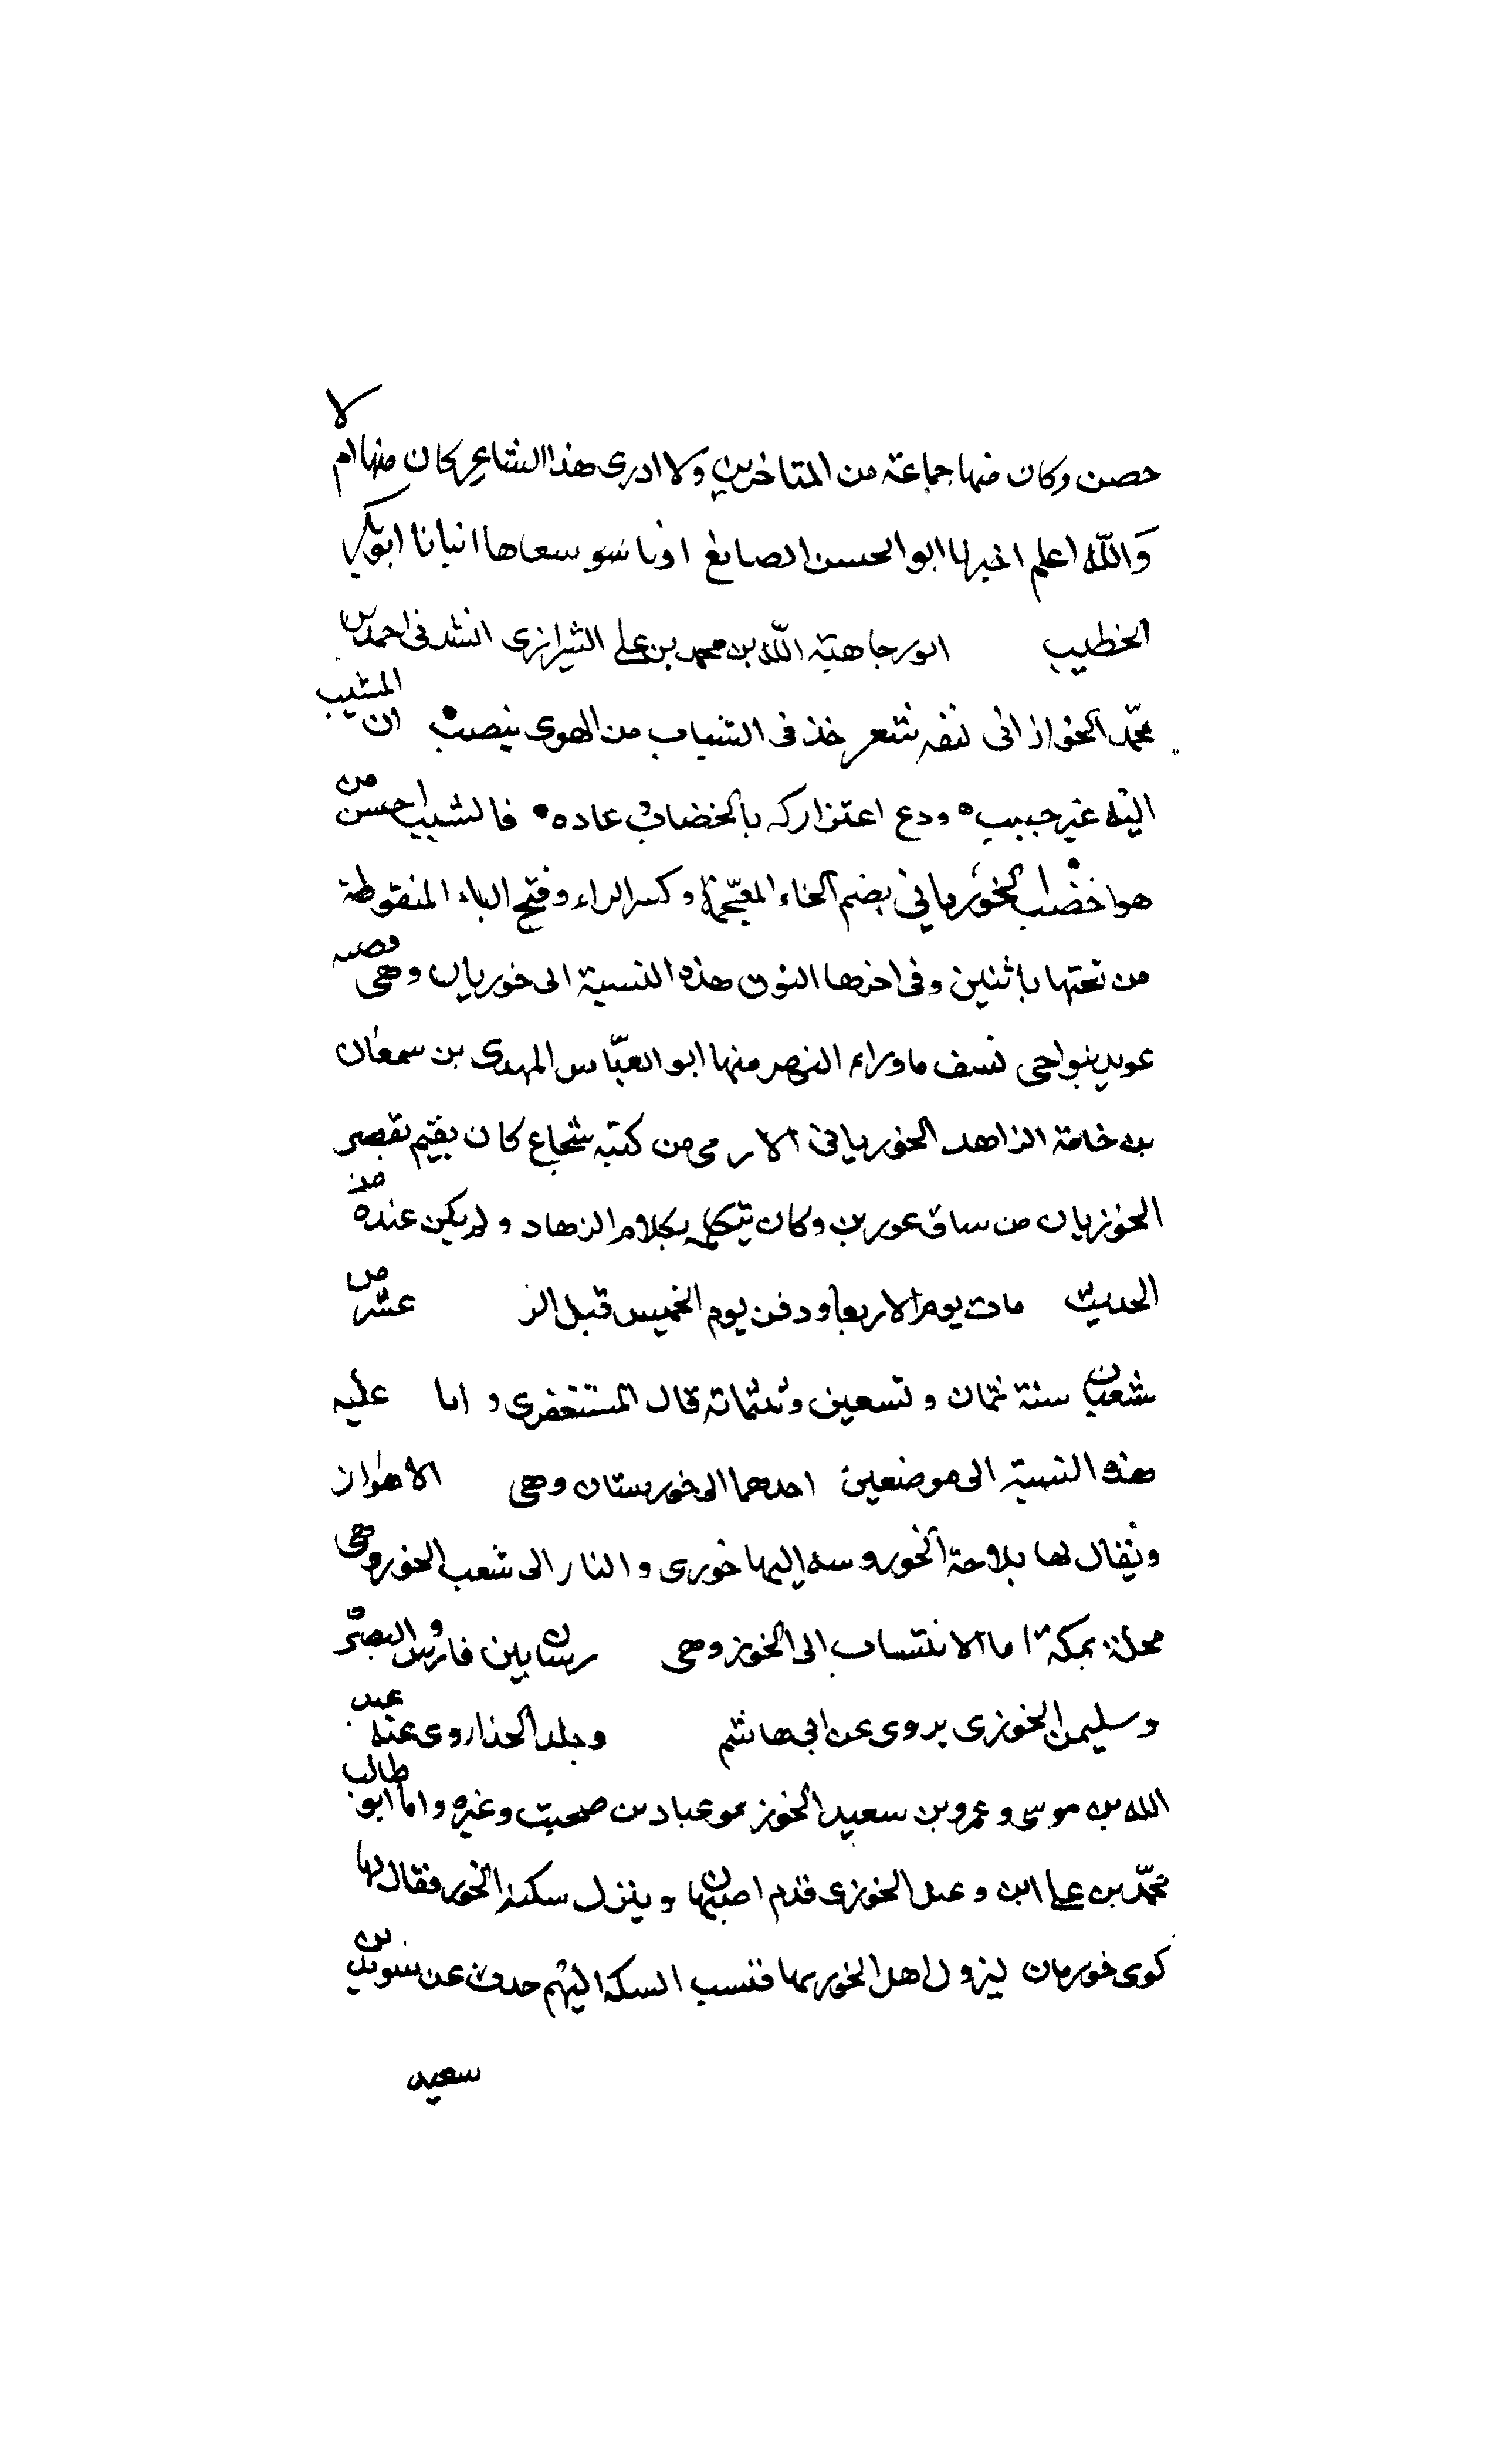 حصن وكان منها جماعة من المتاخرين ولا ادرى هذا الشاعر كان منها ام لا
والله اعلم اخبرنا ابو الحسن الصايغ انبانا ابو بكر
الخطيب ابو رجا هبة الله بن محمد بن على الشيرازى انشدنى احمد بن
محمد الخوازانى لنفسه شعر خذ فى الشباب من الهوى بنصيب ان المشيب
اليه غير حبيب ودع اعتزاركه بالخضاب وعاده فالشيب احسن من
هو اخضاب الخوريانى بضم الخاء المعجمة وكسر الراء وفتح الياء المنقوطة
من تحتها باثنين وفى اخرها النون هذه النسبة الى خوريان وهى قصبه
بنواحى نسف ماوراء النهر منها ابو العباس المهدى بن سمعان
بن حامد الزاهد الخوريانى من كتبه شجاع كان يقيم بقصر
الخوزيان من وكان يتكلم بكلام الزهاد ولم يكن عنده من
الحديث مات يوم الاربعا ودفن يوم الخميس قبل الز عشر من
شعبان سنة ثمان وتسعين وثلثمائة قال المستغفرى و انا عليه
هذه النسبة الى موضعين احدهما الى خورستان وهى الاهواز
ويقال لها بلاد الخور و اليها خورى و الى شعب الخور وهى
محلة بمكة اما الانتساب الى الخوز وهى بين فارس والبصرة
وسليمن الخوزى يروى عن ابى هاشم وجلد الحذا روى عنه عبد
الله بن موسى وعمرو بن سعيد الخوز عباد بن صحيب وغيره واما ابو طالب
محمد بن على ابن الخوزى قدم اصبهان وينزل سكة الخور فقال لها
كوى خوريان لنزول اهل الخور بها فنسب السكة اليهم حدث عن سويد بن
سعيد